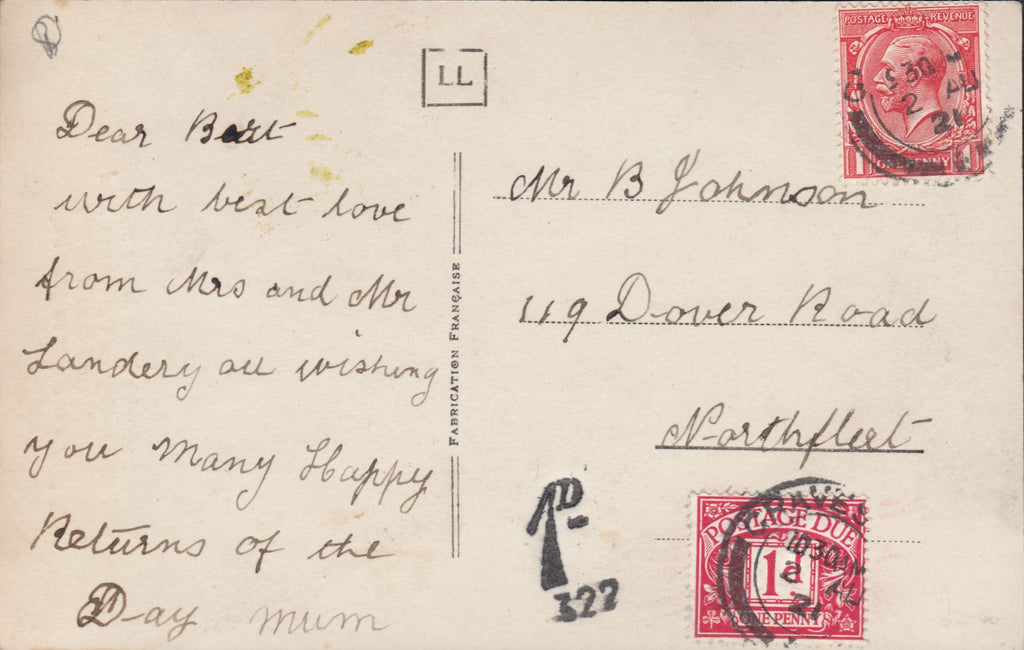 LL
Dear Bert
with best love
from Mrs and Mr
Landery all wishing
you Many Happy
Returns of the
Day mum
FABRICATION FRANÇAISE
POSTAGE REVENUE
ONE PENNY
30
2 AU
21
Mr B Johnson
119 Dover Road
Northfleet
1D
322
GRAVES
POSTAGE DUE
1d
ONE PENNY
1030AM
2 AU
21